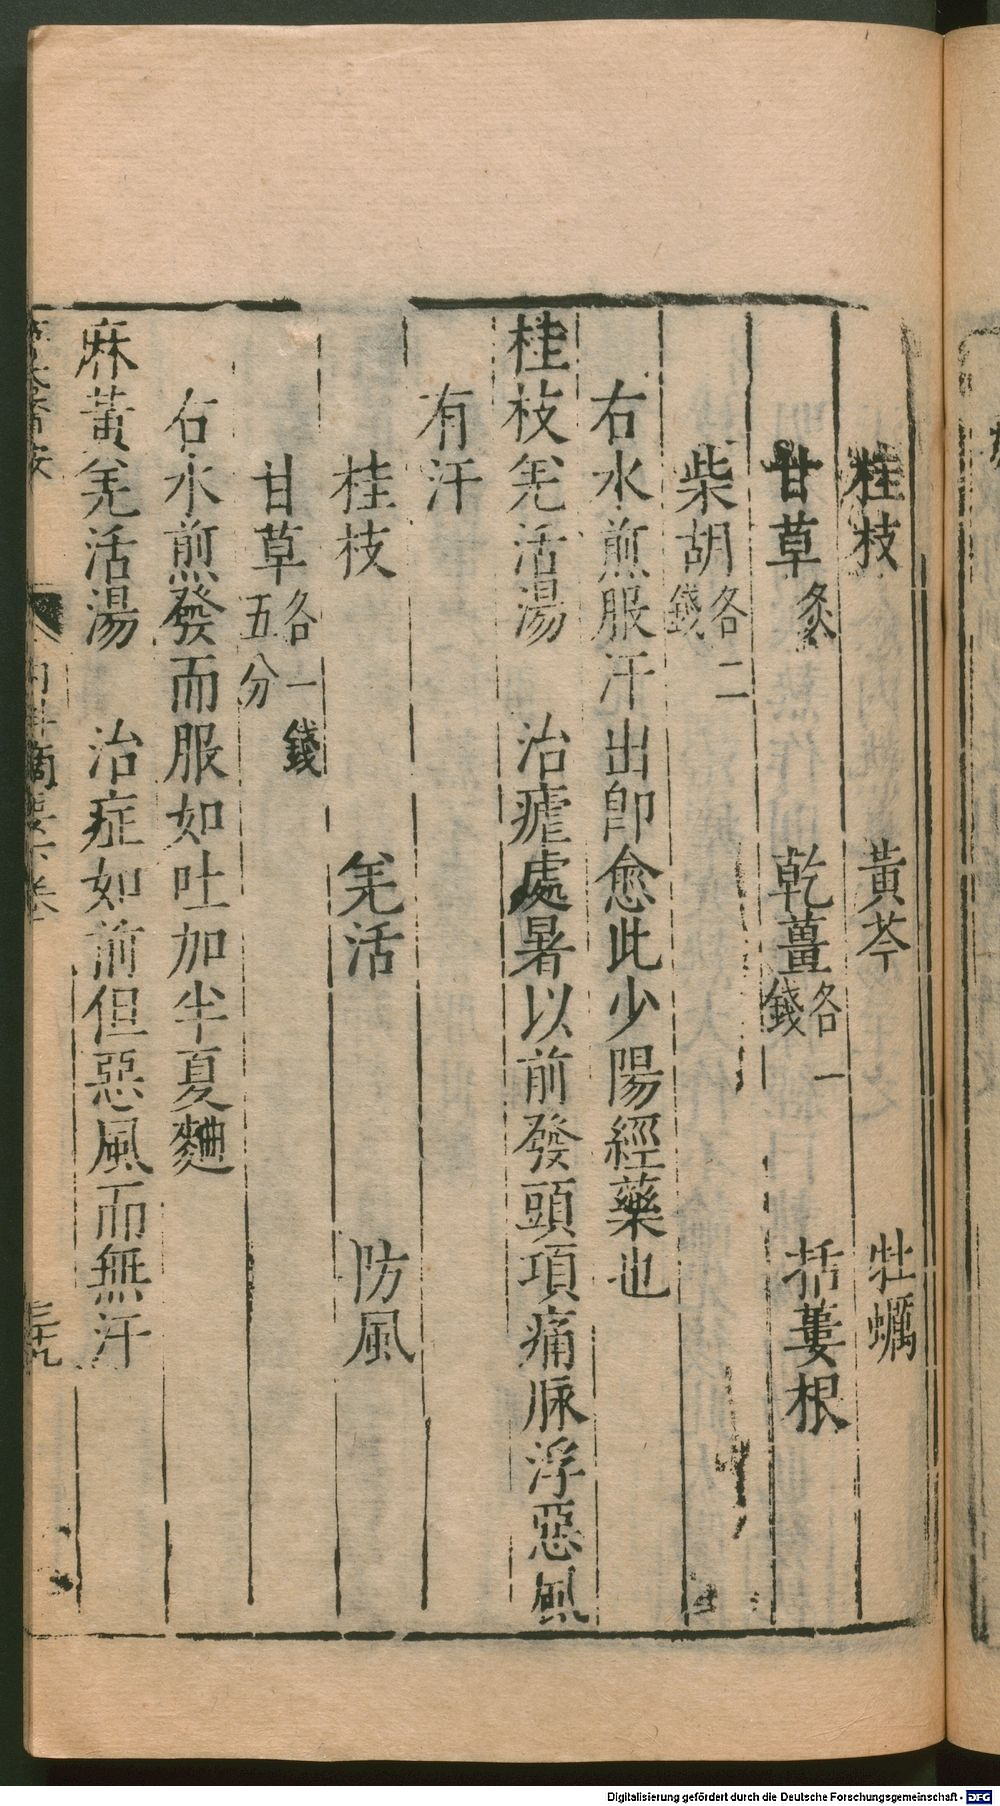 桂枝 黃芩 牡蠣
甘草炙 乾薑各一錢 括蔞根
柴胡各二錢
右水煎服汗出卽愈此少陽經藥也
桂枝羌活湯 治瘧處暑以前發頭項痛脉浮惡風
有汗
桂枝 羌活 防風
甘草各一錢五分
右水煎發而服如吐加半夏麯
麻黃羌活湯 治症如前但惡風而無汗
內科摘要六卷 三十九
Digitalisierung gefördert durch die Deutsche Forschungsgemeinschaft - DFG